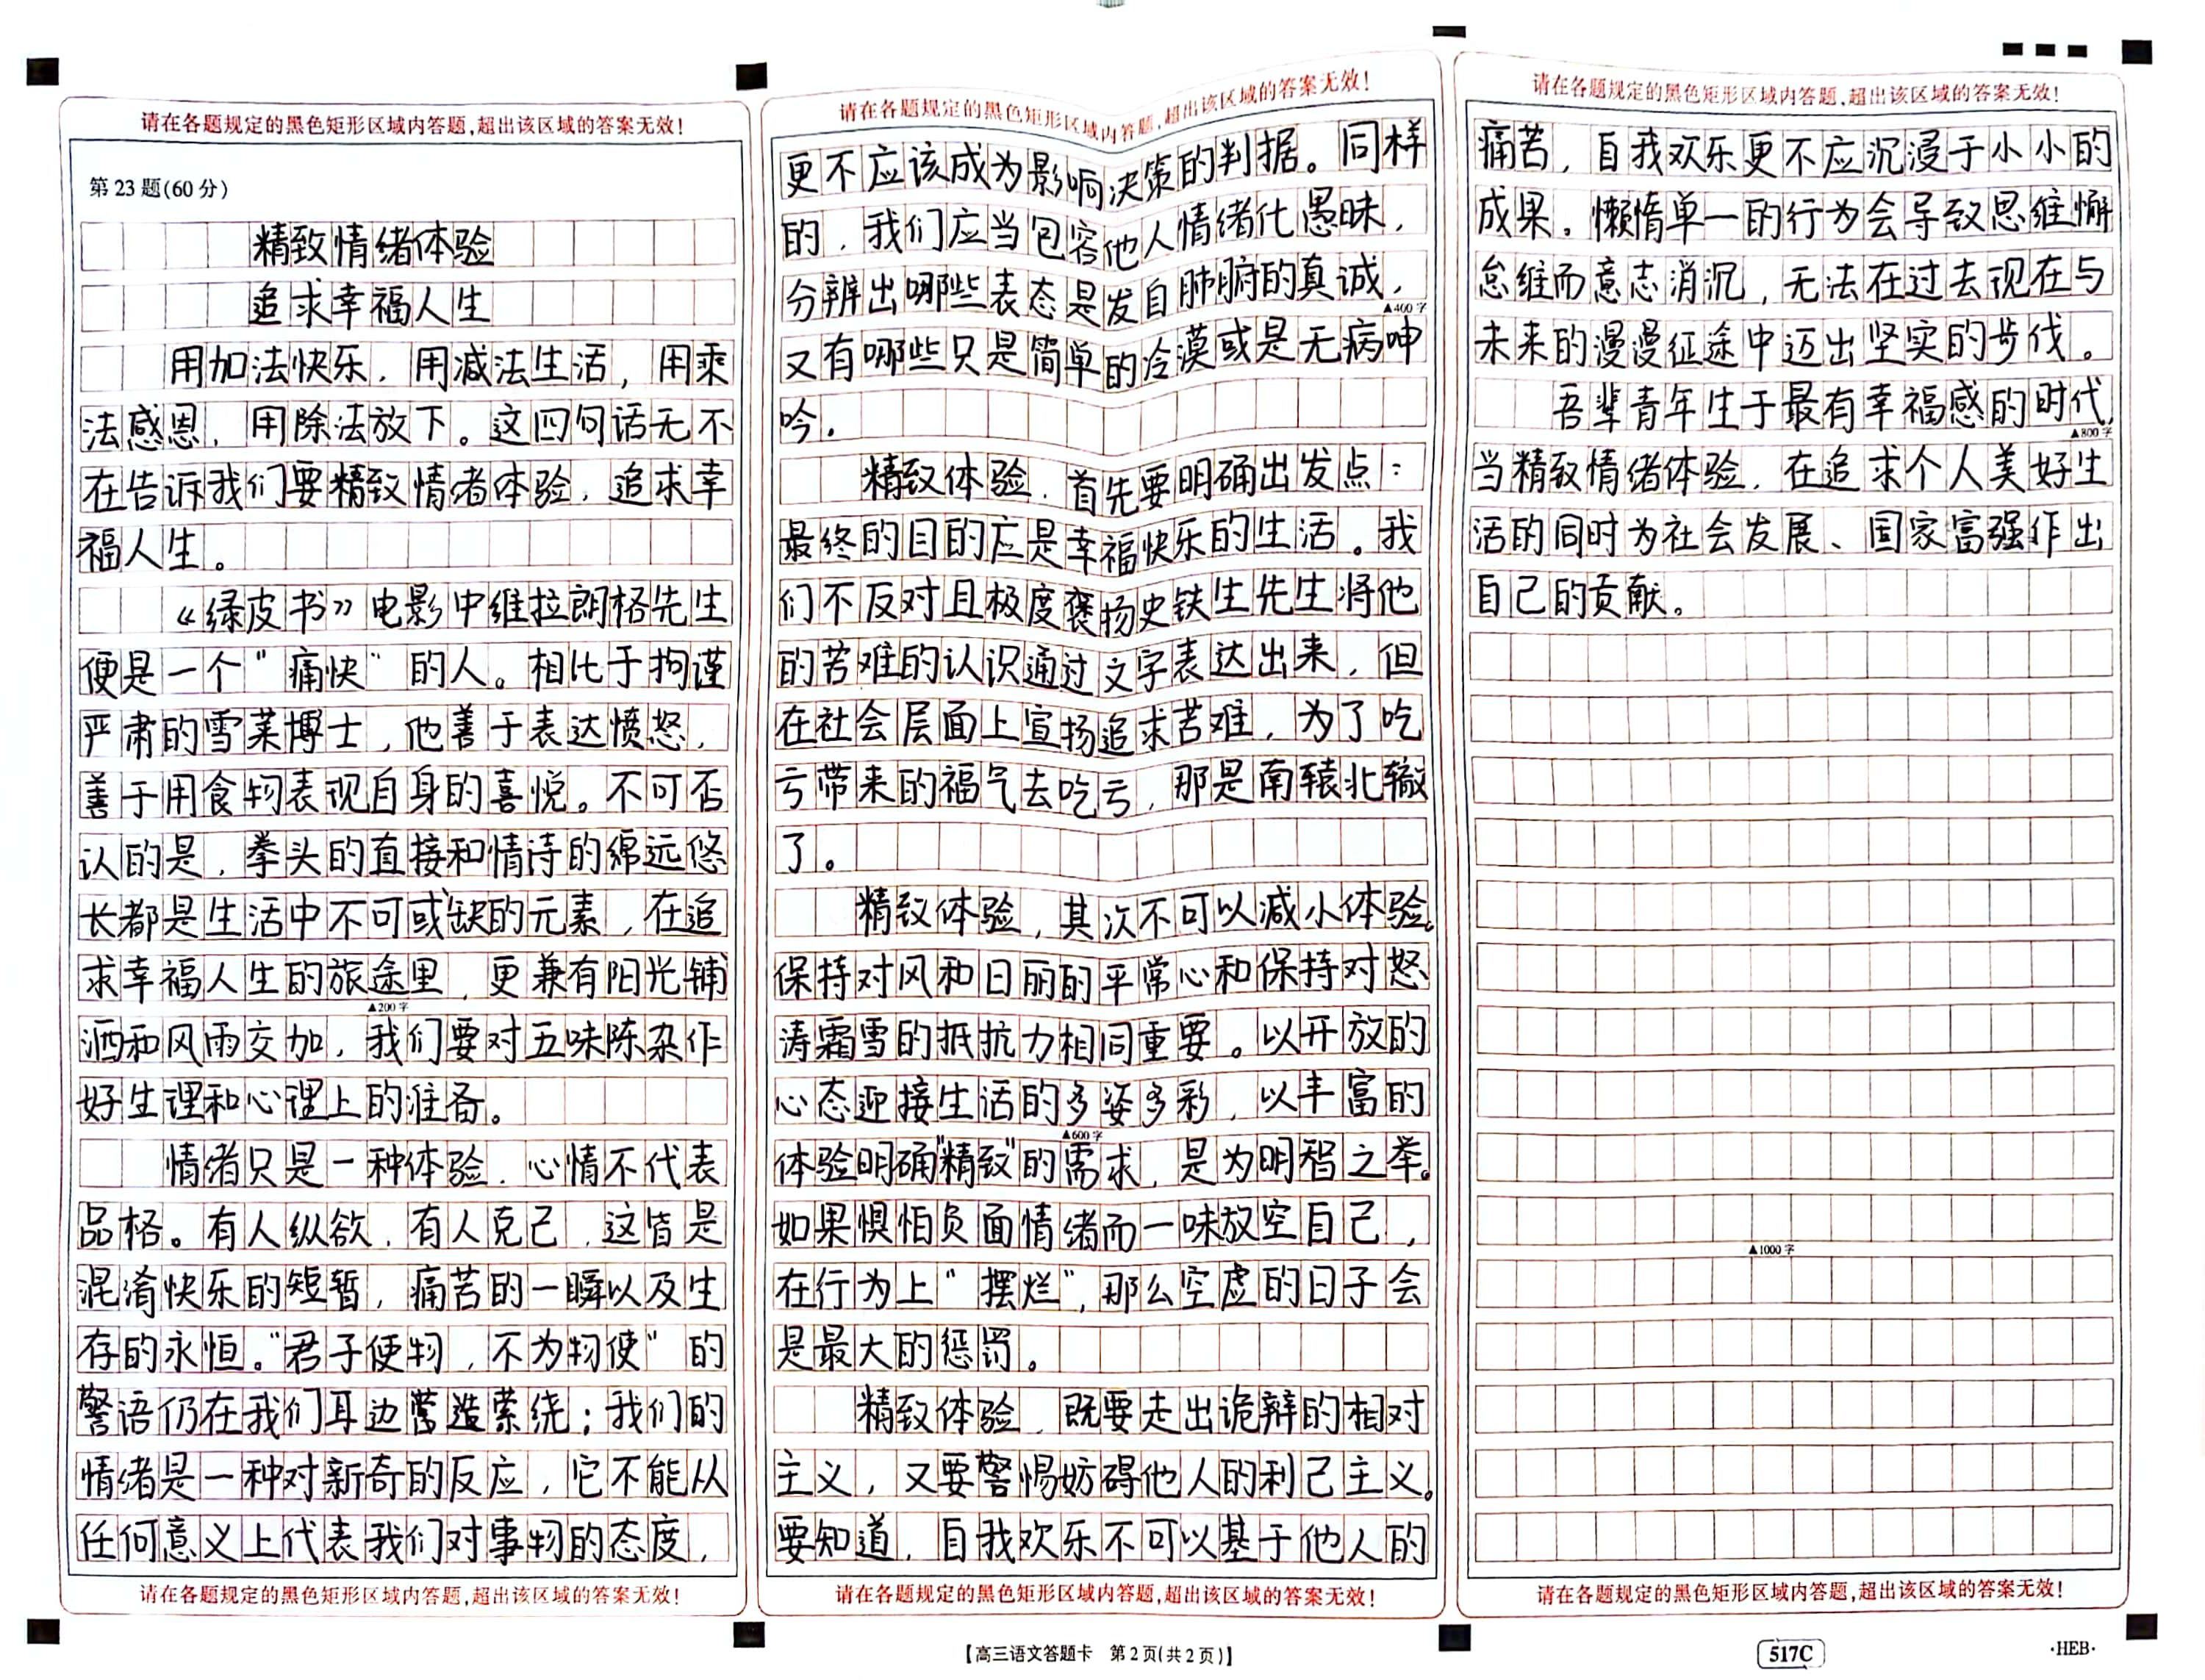 请在各题规定的黑色矩形区域内答题,超出该区域的答案无效!
第23题(60分)
精致情绪体验
追求幸福人生
用加法快乐，用减法生活，用乘
法感恩，用除法放下。这四句话无不
在告诉我们要精致情绪体验，追求幸
福人生。
《绿皮书》电影中维拉朗格先生
便是一个“痛快”的人。相比于拘谨
严肃的雪莱博士，他善于表达愤怒，
善于用食物表现自身的喜悦。不可否
认的是，拳头的直接和情诗的绵远悠
长都是生活中不可或缺的元素，在追
求幸福人生的旅途里，更兼有阳光铺
▲200字
洒和风雨交加，我们要对五味陈杂作
好生理和心理上的准备。
情绪只是一种体验，心情不代表
品格。有人纵欲，有人克己，这皆是
混淆快乐的短暂，痛苦的一瞬以及生
存的永恒。“君子使物，不为物使”的
警语仍在我们耳边萦绕；我们的
情绪是一种对新奇的反应，它不能从
任何意义上代表我们对事物的态度，
请在各题规定的黑色矩形区域内答题,超出该区域的答案无效!
请在各题规定的黑色矩形区域内答题,超出该区域的答案无效!
更不应该成为影响决策的判据。同样
的，我们应当包容他人情绪化愚昧，
分辨出哪些表态是发自肺腑的真诚，
▲400字
又有哪些只是简单的冷漠或是无病呻
吟。
精致体验，首先要明确出发点：
最终的目的应是幸福快乐的生活。我
们不反对且极度褒扬史铁生先生将他
的苦难的认识通过文字表达出来，但
在社会层面上宣扬追求苦难，为了吃
亏带来的福气去吃亏，那是南辕北辙
了。
精致体验，其次不可以减小体验。
保持对风和日丽的平常心和保持对怒
涛霜雪的抵抗力相同重要。以开放的
心态迎接生活的多姿多彩，以丰富的
▲600字
体验明确“精致”的需求，是为明智之举。
如果惧怕负面情绪而一味放空自己，
在行为上“摆烂”，那么空虚的日子会
是最大的惩罚。
精致体验，既要走出诡辩的相对
主义，又要警惕妨碍他人的利己主义。
要知道，自我欢乐不可以基于他人的
请在各题规定的黑色矩形区域内答题,超出该区域的答案无效!
【高三语文答题卡 第2页(共2页)】
请在各题规定的黑色矩形区域内答题,超出该区域的答案无效!
痛苦，自我欢乐更不应沉浸于小小的
成果。懒惰单一的行为会导致思维懈
怠继而意志消沉，无法在过去现在与
未来的漫漫征途中迈出坚实的步伐。
吾辈青年生于最有幸福感的时代，
▲800字
当精致情绪体验，在追求个人美好生
活的同时为社会发展、国家富强作出
自己的贡献。
▲1000字
请在各题规定的黑色矩形区域内答题,超出该区域的答案无效!
517C
·HEB·